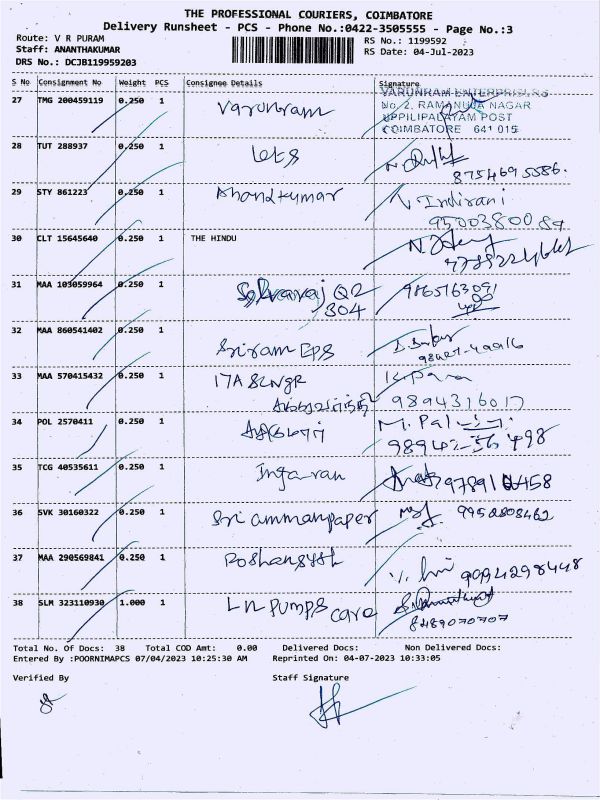 THE PROFESSIONAL COURIERS, COIMBATORE
Delivery Runsheet - PCS - Phone No.:0422-3505555 - Page No.:3
Route: V R PURAM RS No.: 1199592
Staff: ANANTHAKUMAR RS Date: 04-Jul-2023
DRS No.: DCJB119959203
S No Consignment No Weight PCS Consignee Details Signature
27 TMG 200459119 0.250 1 Varunram VARUNRAM ENTERPRISES
No. 2, RAMANUJA NAGAR
UPPILIPALAYAM POST
COIMBATORE 641 015
28 TUT 288937 0.250 1 lets
8754695586.
29 STY 861223 0.250 1 Anandkumar V Indirani
9500380089
30 CLT 15645640 0.250 1 THE HINDU
31 MAA 103059964 0.250 1 Selvaraj Q2 9865163091
304
32 MAA 860541402 0.250 1 Sriram EPS
33 MAA 570415432 0.250 1 17A SLNGR
9894316017
34 POL 2570411 0.250 1
35 TCG 40535611 0.250 1
36 SVK 30160322 0.250 1 Sri ammanpaper 9952808462
37 MAA 290569841 0.250 1 Roshansyst 9094298448
38 SLM 323110930 1.000 1 LN PUMPS care
8489070707
Total No. Of Docs: 38 Total COD Amt: 0.00 Delivered Docs: Non Delivered Docs:
Entered By :POORNIMAPCS 07/04/2023 10:25:30 AM Reprinted On: 04-07-2023 10:33:05
Verified By Staff Signature